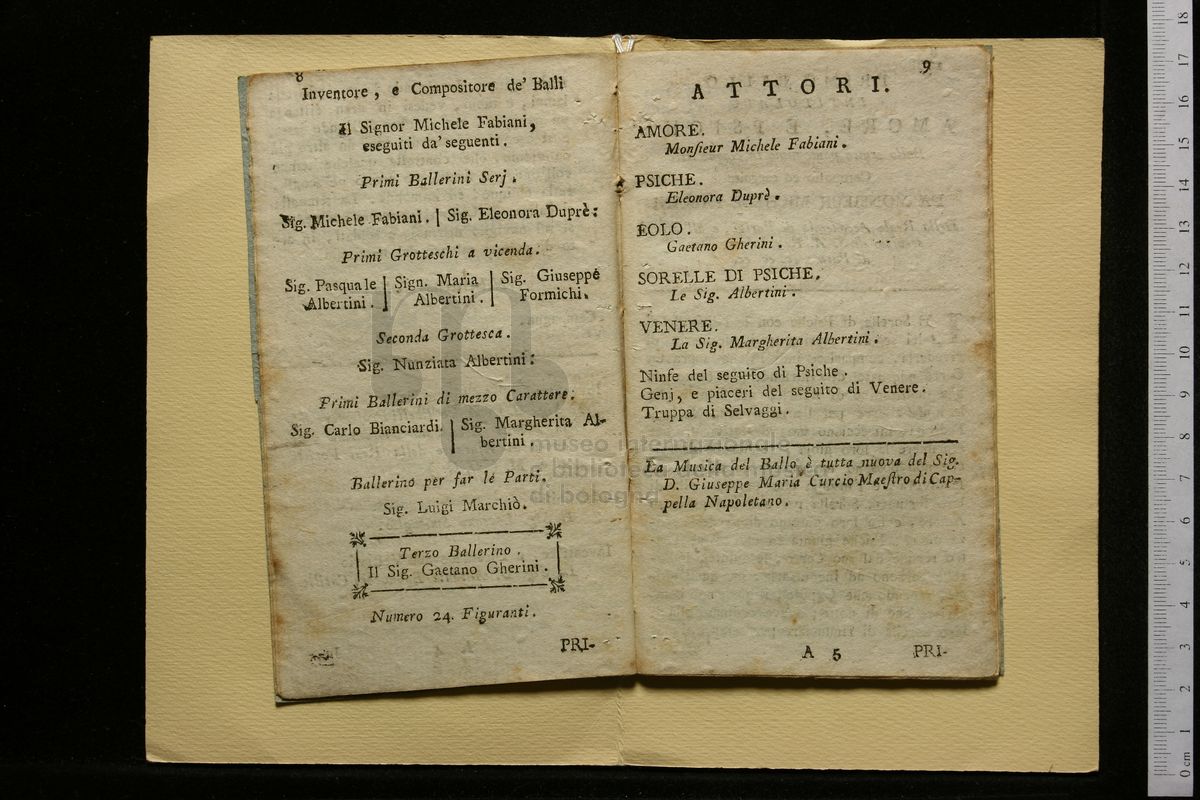 8
Inventore, e Compositore de' Balli
Il Signor Michele Fabiani,
eseguiti da' seguenti.
Primi Ballerini Serj.
Sig. Michele Fabiani. | Sig. Eleonora Duprè:
Primi Grotteschi a vicenda.
Sig. Pasquale Albertini. | Sign. Maria Albertini. | Sig. Giuseppe Formichi.
Seconda Grottesca.
Sig. Nunziata Albertini:
Primi Ballerini di mezzo Carattere:
Sig. Carlo Bianciardi. | Sig. Margherita Al-
bertini.
Ballerino per far le Parti.
Sig. Luigi Marchiò.
Terzo Ballerino.
Il Sig. Gaetano Gherini.
Numero 24. Figuranti.
PRI-
9
ATTORI.
AMORE.
Monſieur Michele Fabiani.
PSICHE.
Eleonora Duprè.
EOLO.
Gaetano Gherini.
SORELLE DI PSICHE.
Le Sig. Albertini.
VENERE.
La Sig. Margherita Albertini.
Ninfe del seguito di Psiche.
Genj, e piaceri del seguito di Venere.
Truppa di Selvaggi.
La Musica del Ballo è tutta nuova del Sig.
D. Giuseppe Maria Curcio Maeſtro di Cap-
pella Napoletano.
A 5
PRI-
museo internazionale
e biblioteca della musica
di bologna
0 cm 1 2 3 4 5 6 7 8 9 10 11 12 13 14 15 16 17 18